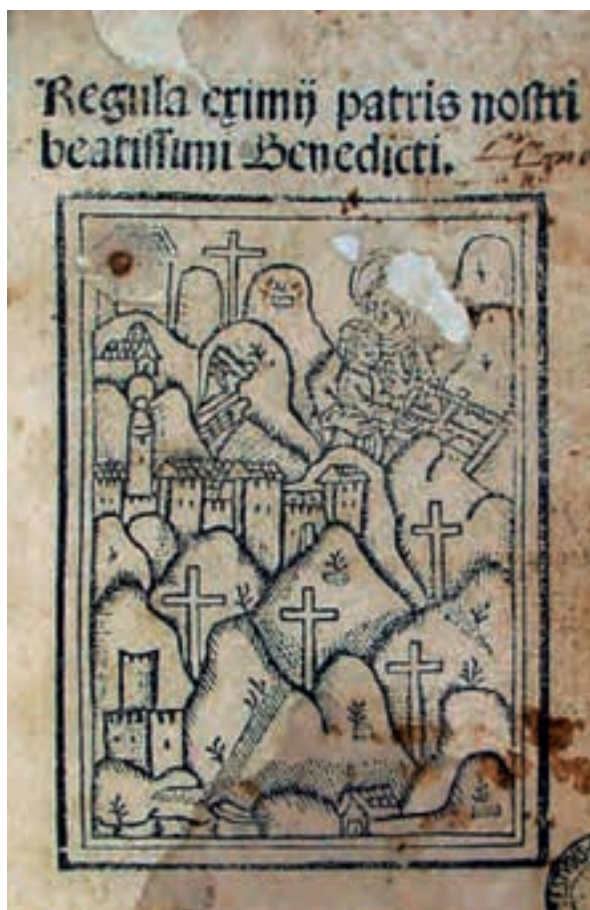 Regula eximij patris noſtri
beatiſſimi Benedicti.